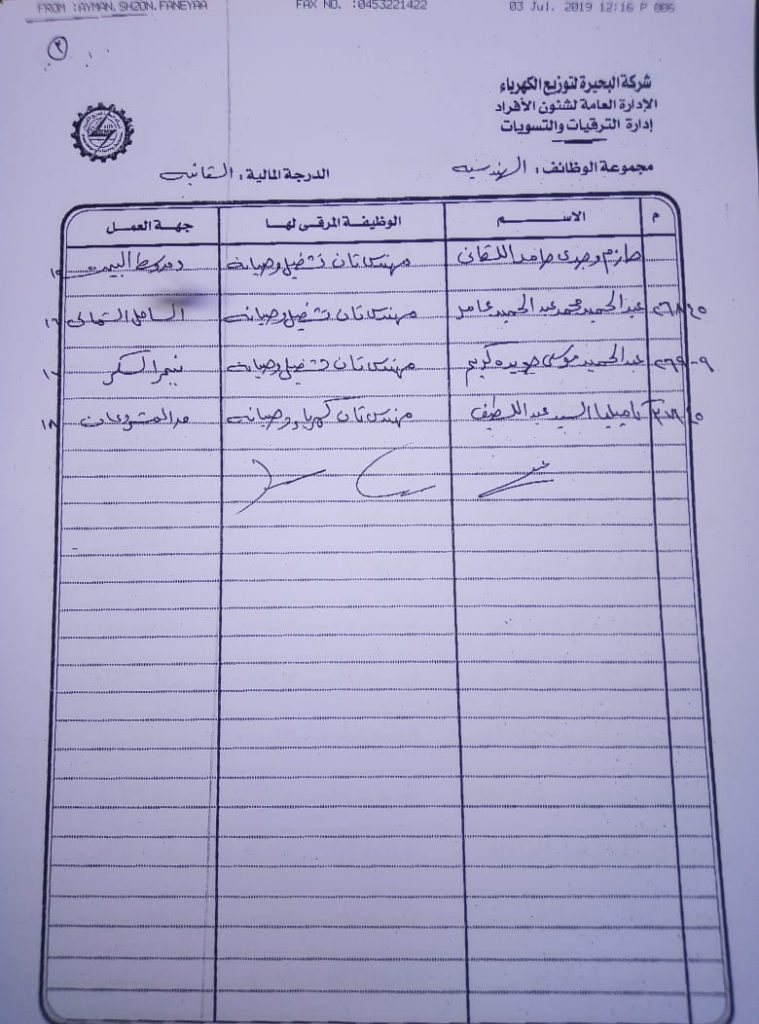 FROM :AYMAN.SHZON.FANEYAA FAX NO. :0453221422 03 Jul. 2019 12:16 P 006
٢
شركة البحيرة لتوزيع الكهرباء
الإدارة العامة لشئون الأفراد
إدارة الترقيات والتسويات
مجموعة الوظائف : الهندسيه الدرجة المالية : الثانيه
م الاســم الوظيفة المرقى لها جهة العمل
حازم وجدى حامد اللقانى مهندس ثان تشغيل وصيانه ١٥
عبدالحميد محمد عبدالحميد عامر مهندس ثان تشغيل وصيانه الساحل الشمالى ١٦
عبدالحميد موسى جويده كريم مهندس ثان تشغيل وصيانه ١٧
السيد عبداللطيف مهندس ثان كهرباء وصيانه المشروعات ١٨